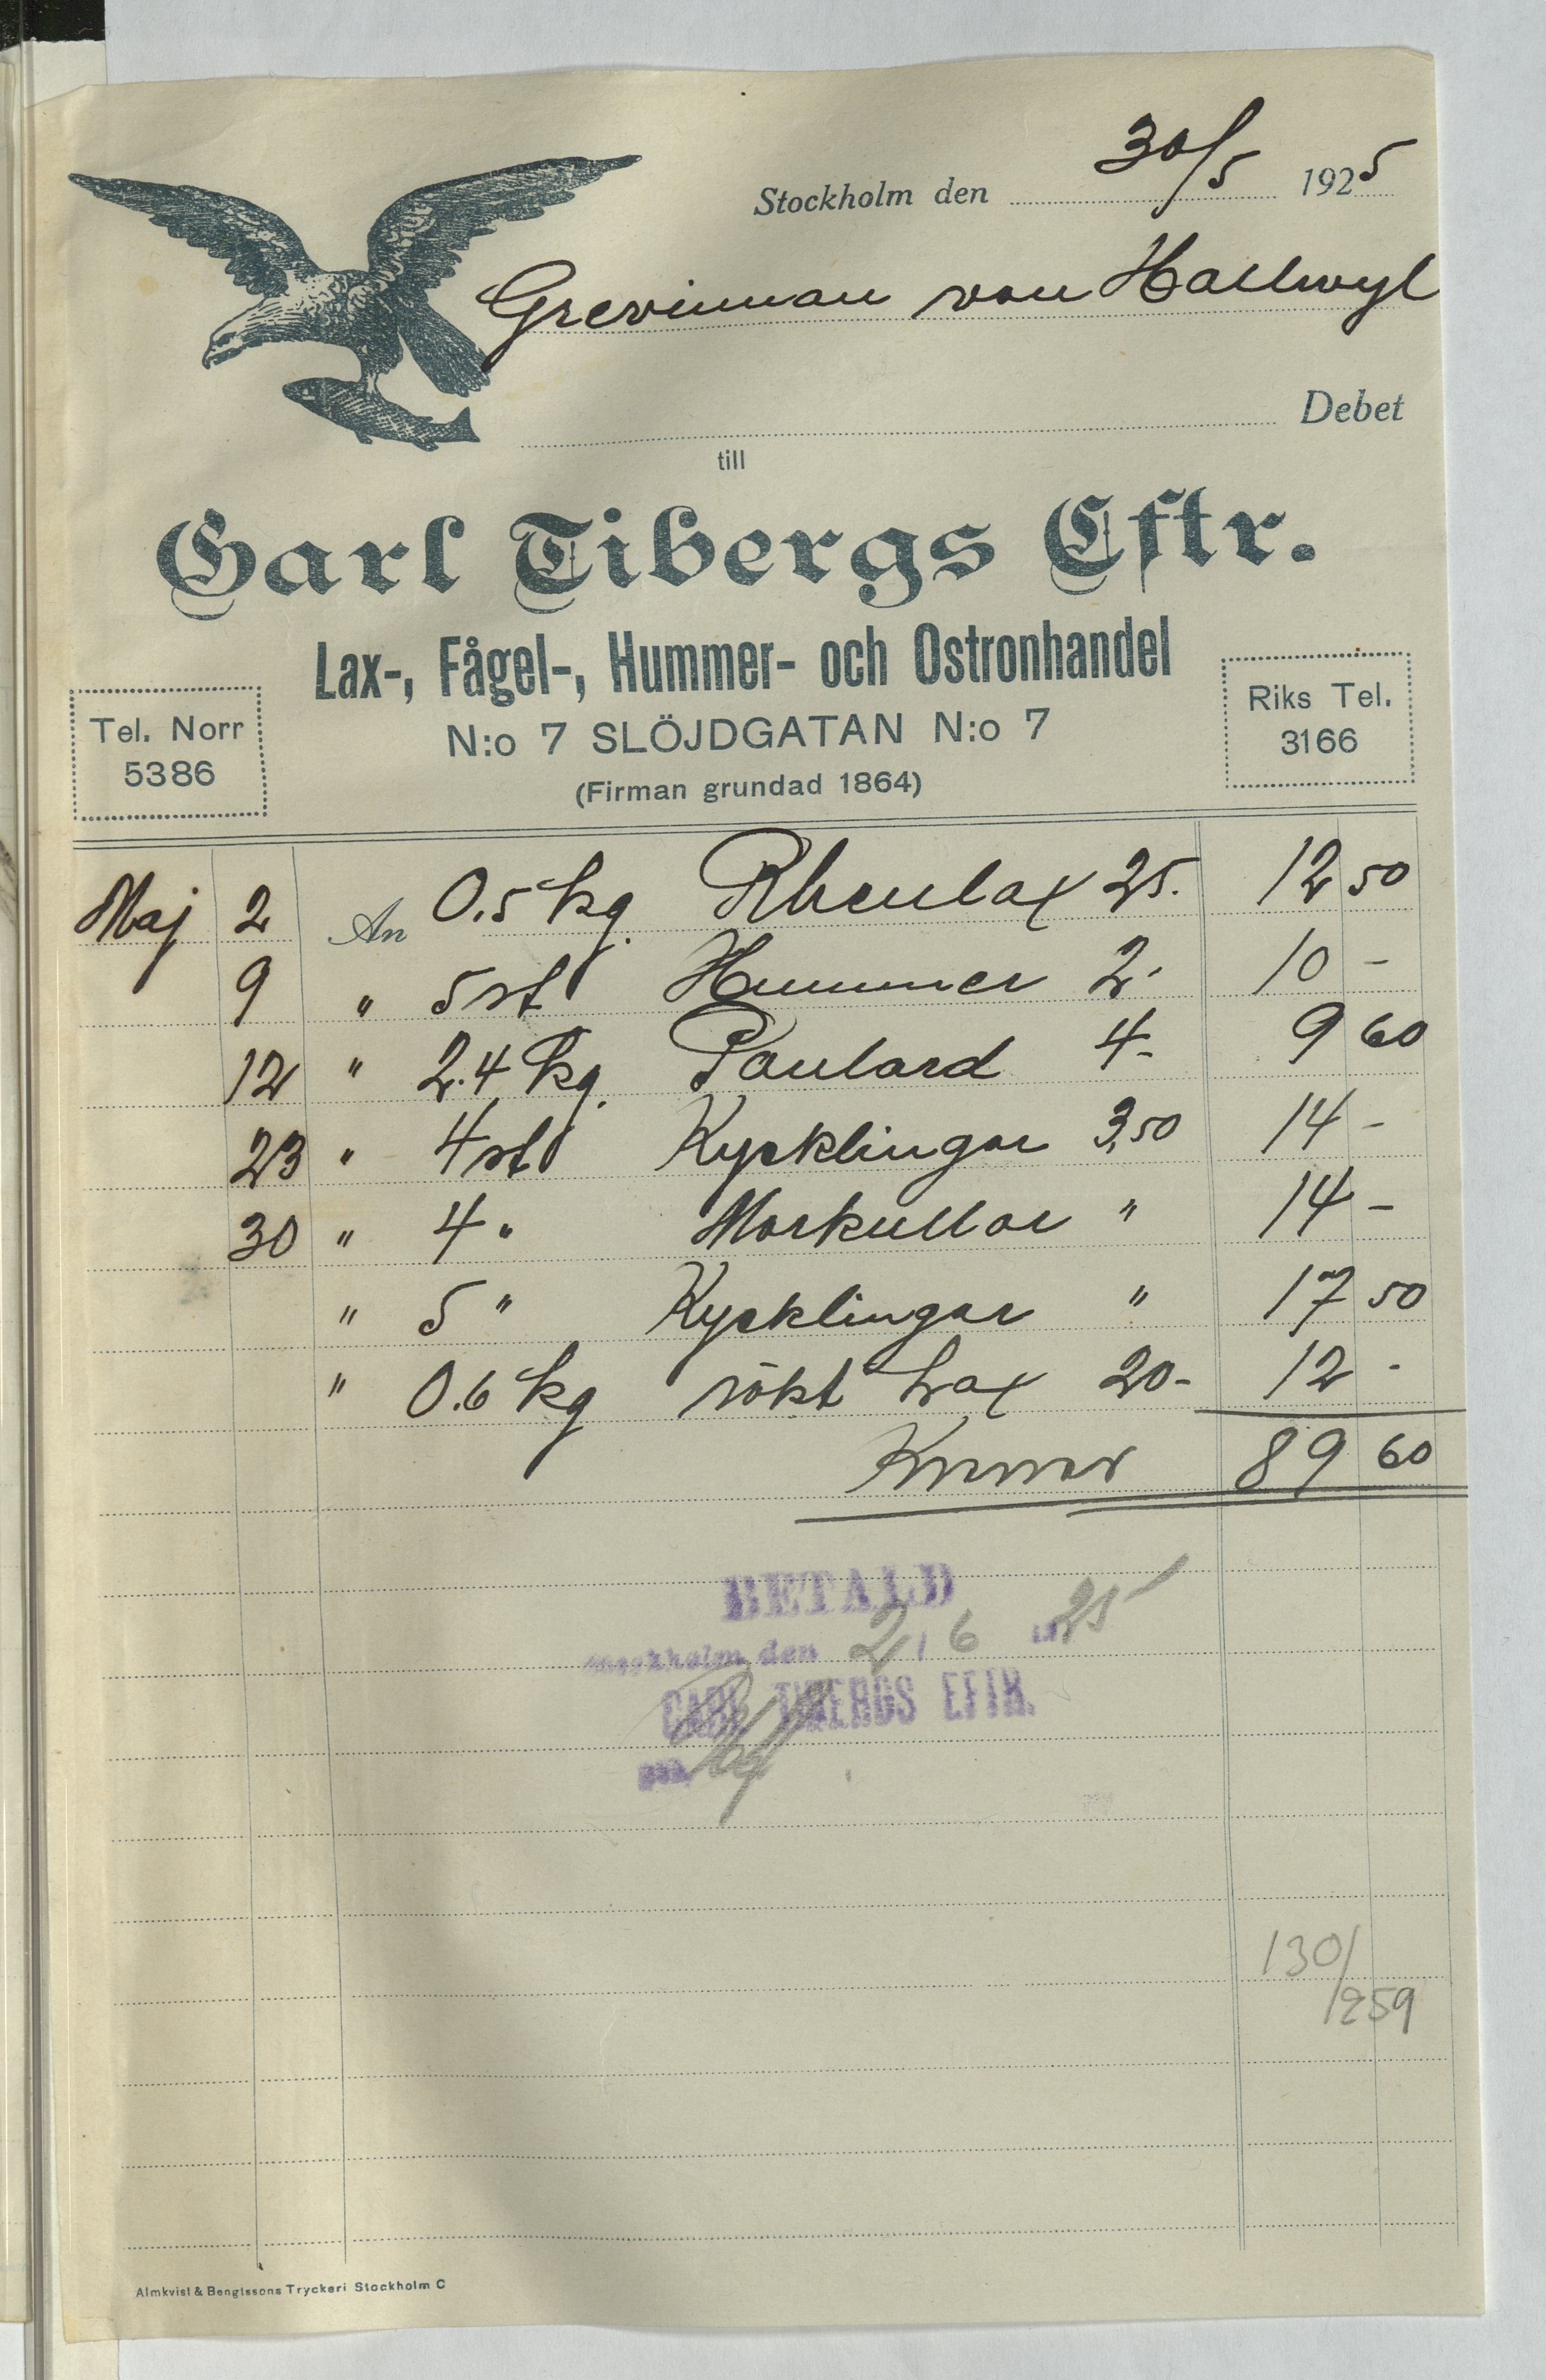 Stockholm den 30/5 1925
Grevinnan von Hallwyl
Debet
till
Carl Tibergs Eftr.
Lax-, Fågel-, Hummer- och Ostronhandel
Tel. Norr 5386
N:o 7 SLÖJDGATAN N:o 7
Riks Tel. 3166
(Firman grundad 1864)
Maj 2 An 0.5 kg. Rhenlax 25. 12 50
9 " 5 st Hummer 2.- 10 -
12 " 2.4 kg. Poulard 4- 9 60
23 " 4 st Kycklingar 3,50 14 -
30 " 4 " Morkullor " 14 -
" 5 " Kycklingar " 17 50
" 0.6 kg rökt Lax 20- 12 -
Kronor 89 60
BETALD
Stockholm den 2/6 1925
CARL TIBERGS EFTR.
130/
/259
Almkvist & Bengtssons Tryckeri Stockholm C